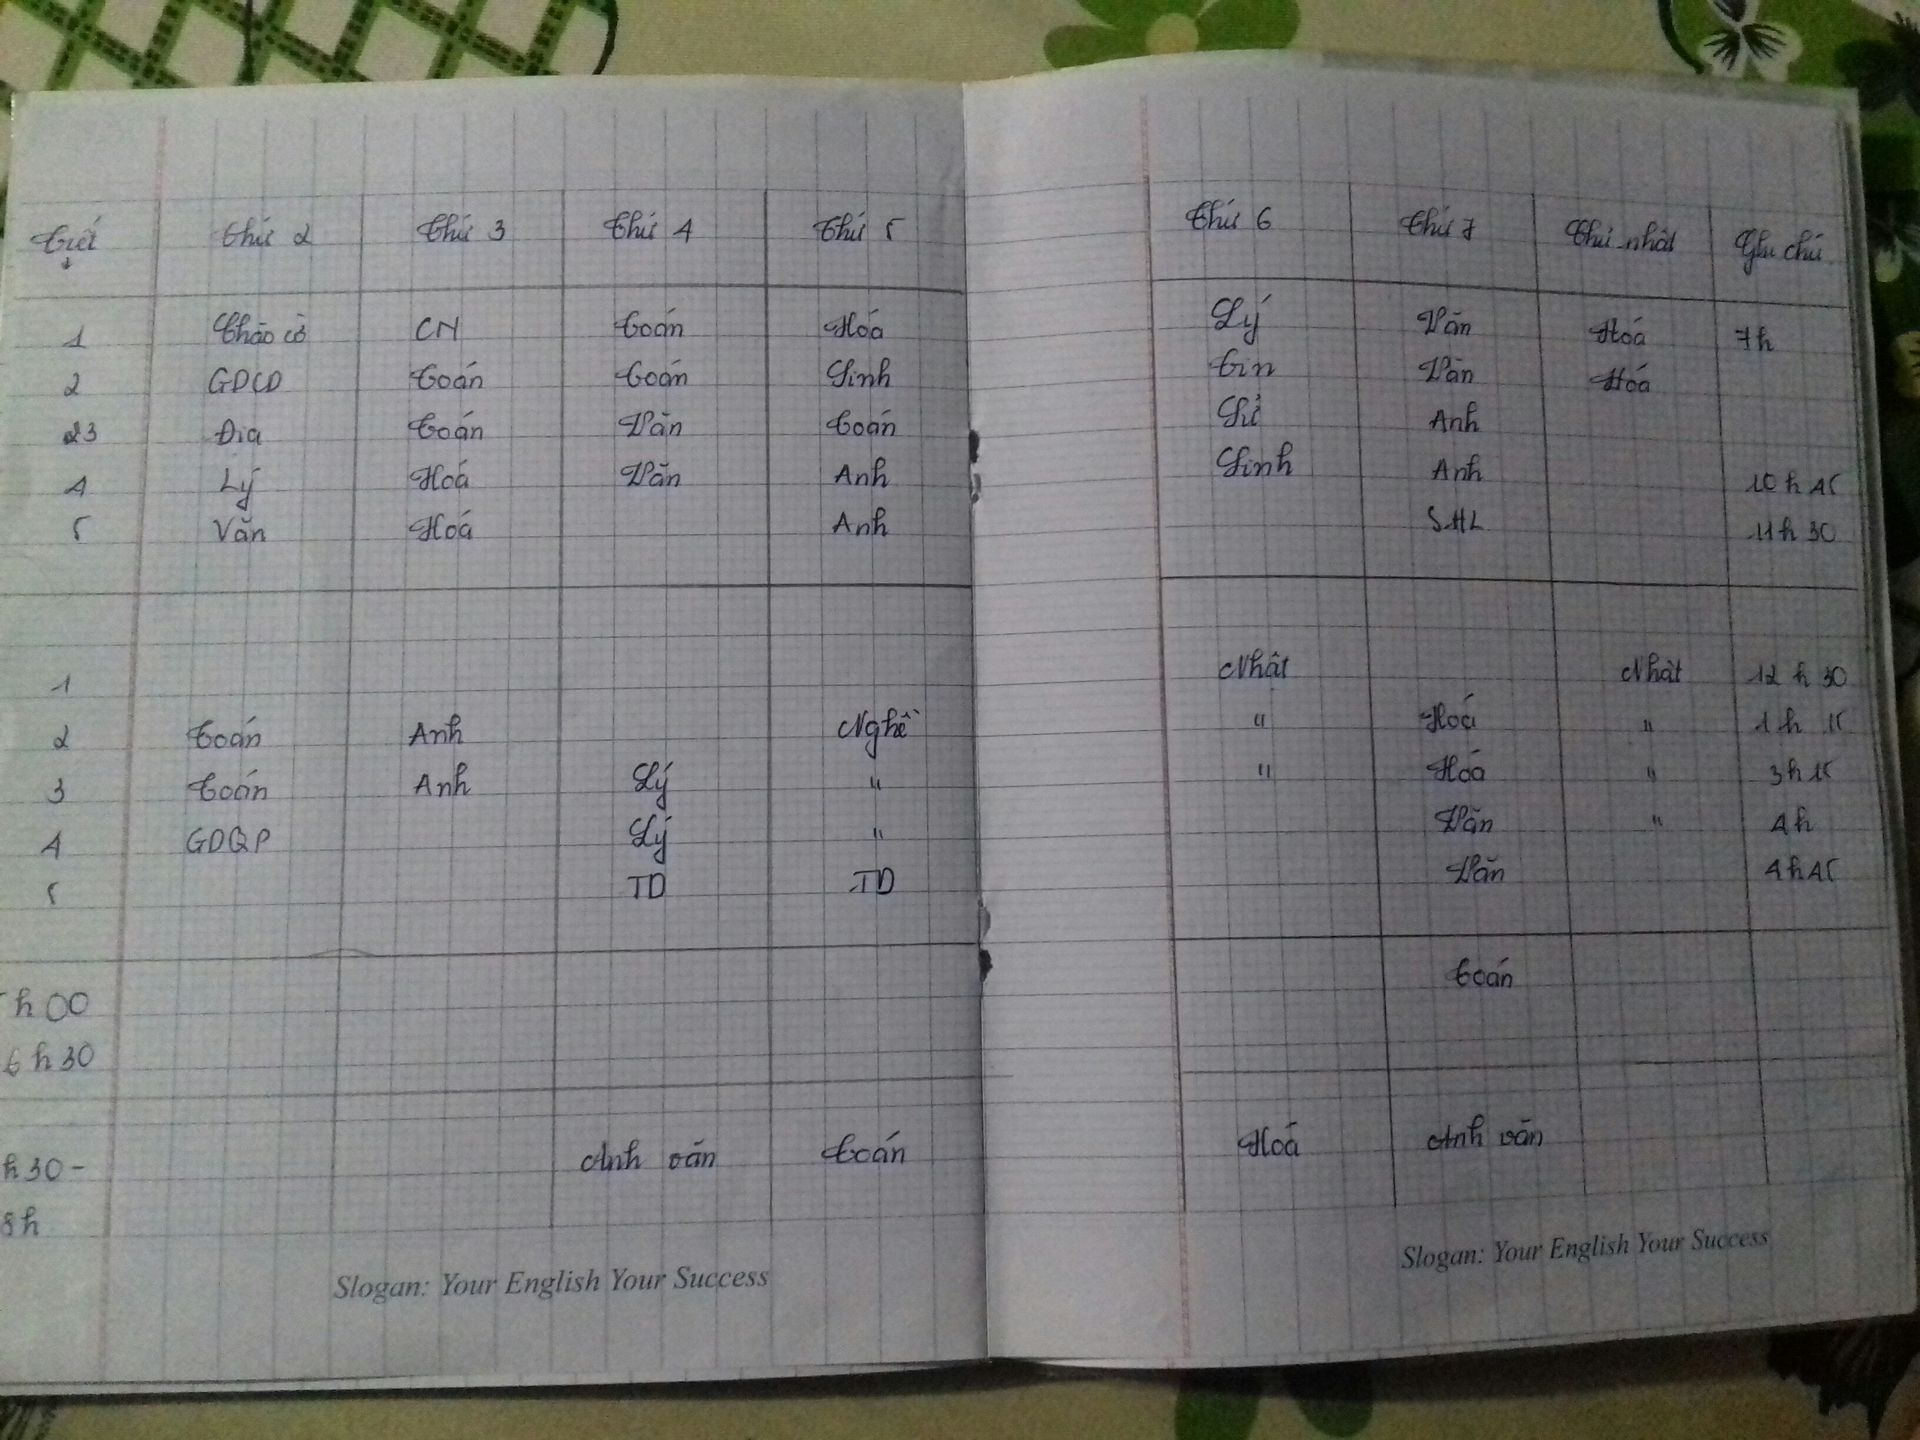 Tiết Thứ 2 Thứ 3 Thứ 4 Thứ 5 Thứ 6 Thứ 7 Chủ nhật Ghi chú
1 Chào cờ CN Toán Hoá Lý Văn Hoá 7h
2 GDCD Toán Toán Sinh Tin Văn Hoá
23 Địa Toán Văn Toán Sử Anh
4 Lý Hoá Văn Anh Sinh Anh 10h45
5 Văn Hoá Anh SHL 11h30
1 Nhật Nhật 12h30
2 Toán Anh Nghề " Hoá " 1h15
3 Toán Anh Lý " " Hoá " 3h15
4 GDQP Lý " Văn " 4h
5 TD TD Văn 4h45
h00 Toán
6h30
h30- Anh văn Toán Hoá Anh văn
8h
Slogan: Your English Your Success
Slogan: Your English Your Success